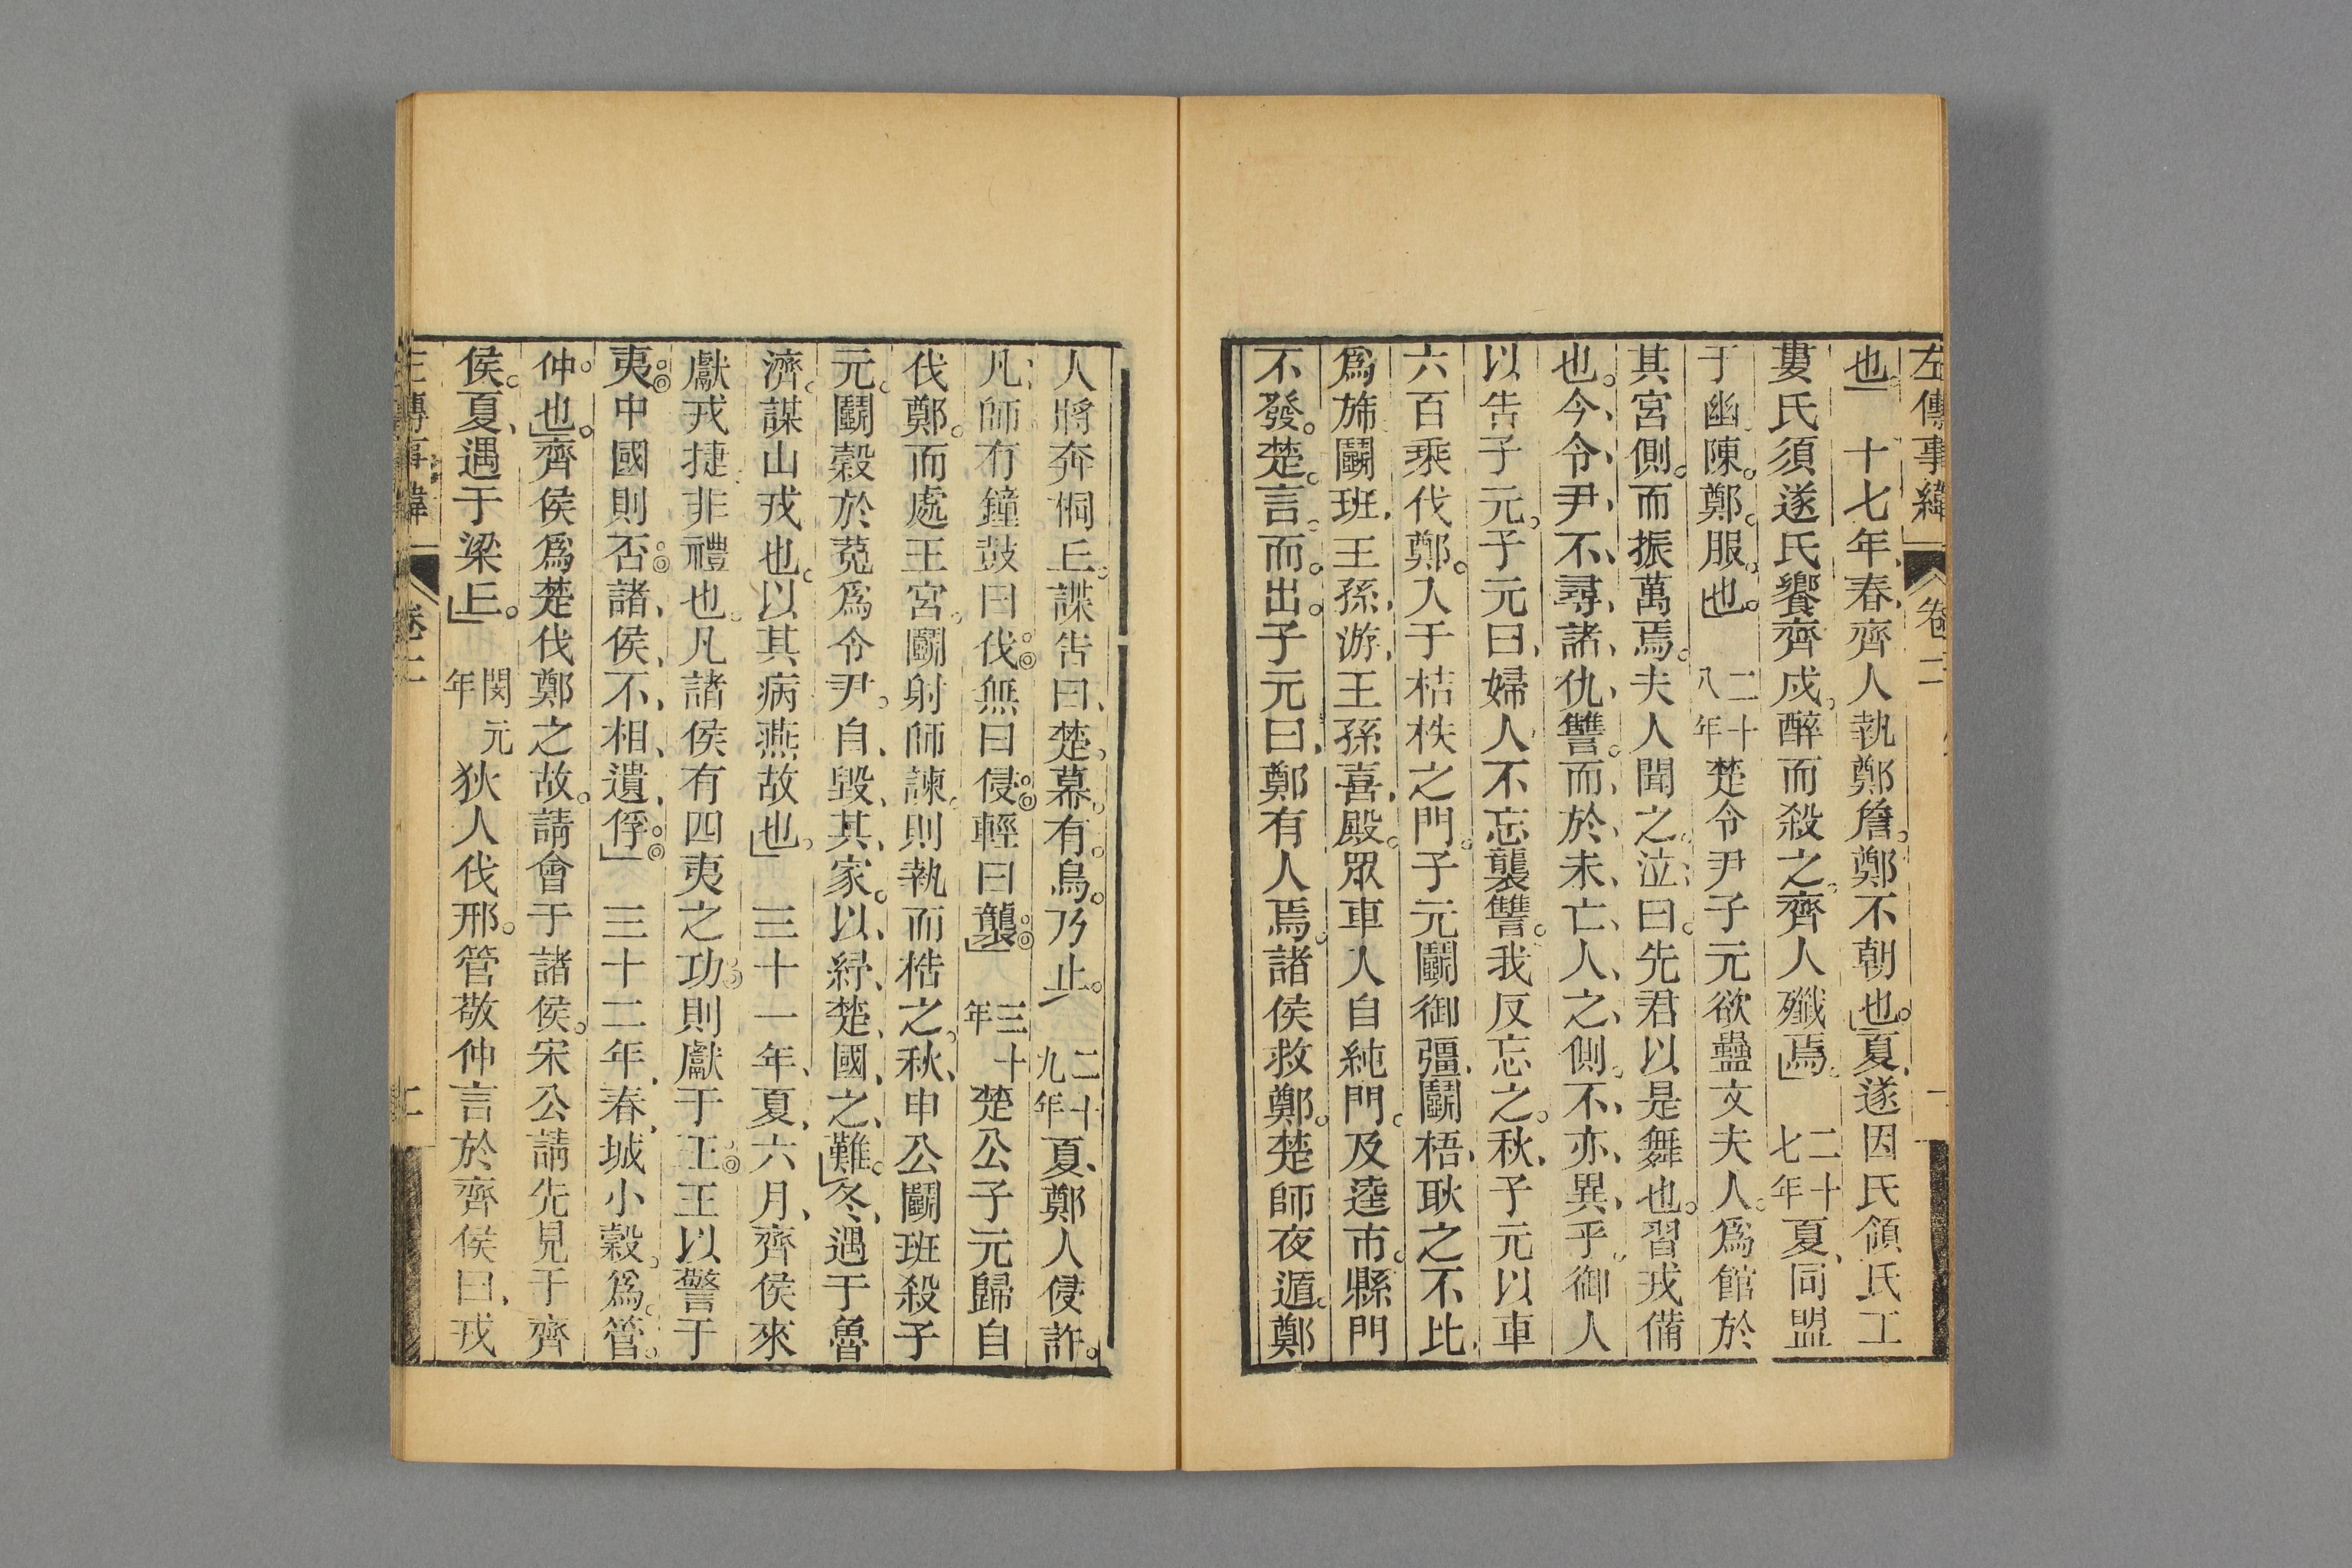 左傳事緯 卷二
也 十七年春齊人執鄭詹鄭不朝也夏遂因氏頜氏工
婁氏須遂氏饗齊戍醉而殺之齊人殲焉 二十七年夏同盟
于幽陳鄭服也 二十八年楚令尹子元欲蠱文夫人爲館於
其宮側而振萬焉夫人聞之泣曰先君以是舞也習戎備
也今令尹不尋諸仇讐而於未亡人之側不亦異乎御人
以告子元子元曰婦人不忘襲讐我反忘之秋子元以車
六百乘伐鄭入于桔柣之門子元鬭御彊鬭梧耿之不比
爲斾鬭班王孫游王孫喜殿眾車入自純門及逵市縣門
不發楚言而出子元曰鄭有人焉諸侯救鄭楚師夜遁鄭
人將奔桐丘諜告曰楚幕有烏乃止 二十九年夏鄭人侵許
凡師有鐘鼓曰伐無曰侵輕曰襲 三十年楚公子元歸自
伐鄭而處王宮鬭射師諫則執而梏之秋申公鬭班殺子
元鬭穀於菟爲令尹自毀其家以紓楚國之難冬遇于魯
濟謀山戎也以其病燕故也 三十一年夏六月齊侯來
獻戎捷非禮也凡諸侯有四夷之功則獻于王王以警于
夷中國則否諸侯不相遺俘 三十二年春城小穀爲管
仲也齊侯爲楚伐鄭之故請會于諸侯宋公請先見于齊
侯夏遇于梁丘 閔元年狄人伐邢管敬仲言於齊侯曰戎
左傳事緯 卷二